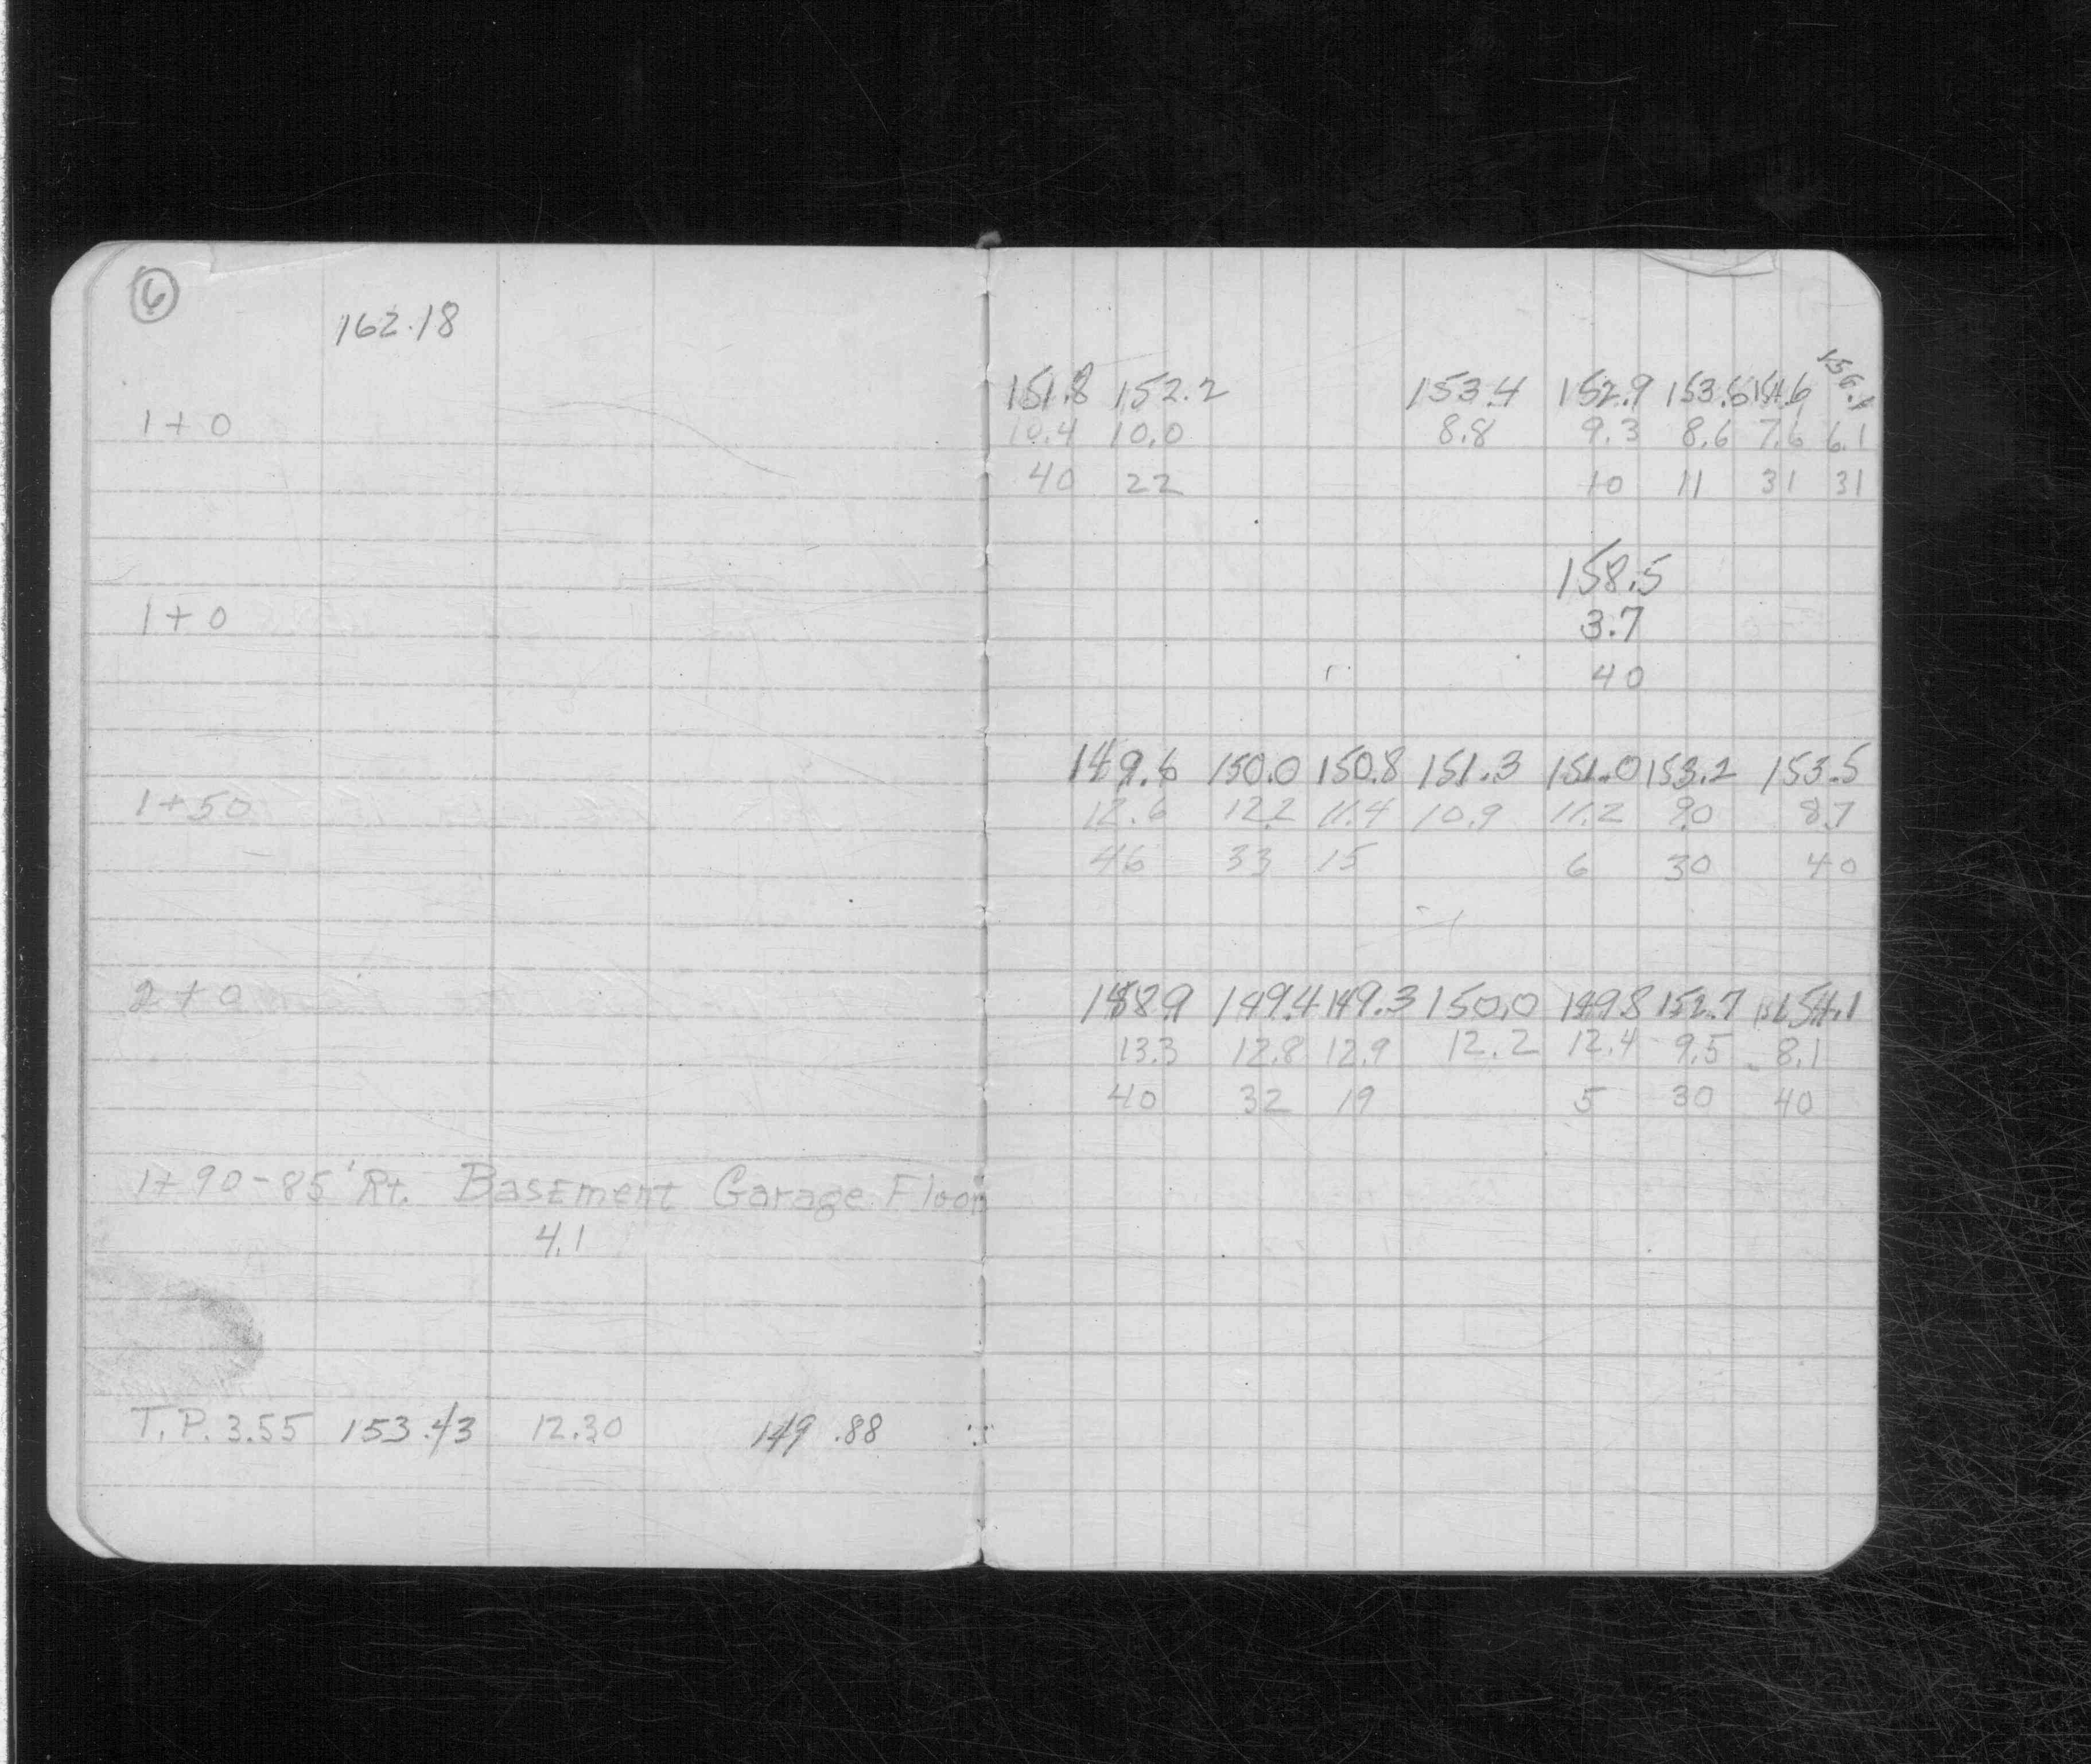 6
162.18
151.8 152.2 153.4 152.9 153.6 154.6 156.1
1+0 10.4 10.0 8.8 9.3 8.6 7.6 6.1
40 22 10 11 31 31
158.5
1+0 3.7
40
149.6 150.0 150.8 151.3 151.0 153.2 153.5
1+50 12.6 12.2 11.4 10.9 11.2 9.0 8.7
46 33 15 6 30 40
2+0 148.9 149.4 149.3 150.0 149.8 152.7 154.1
13.3 12.8 12.9 12.2 12.4 9.5 8.1
40 32 19 5 30 40
1+90-85' Rt. Basement Garage Floor
4.1
T.P. 3.55 153.43 12.30 149.88